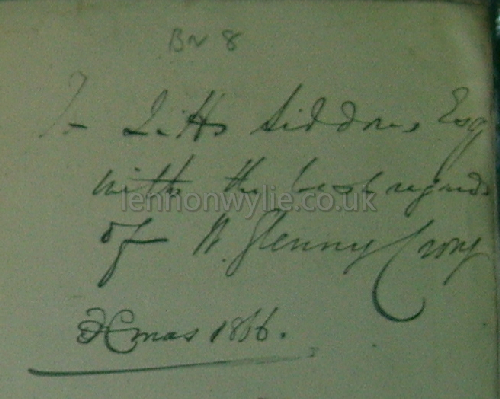 BN 8
To J. Hs Siddons, Esq
with the best regards
of W. Glenny Crory
lennonwylie.co.uk
Xmas 1866.